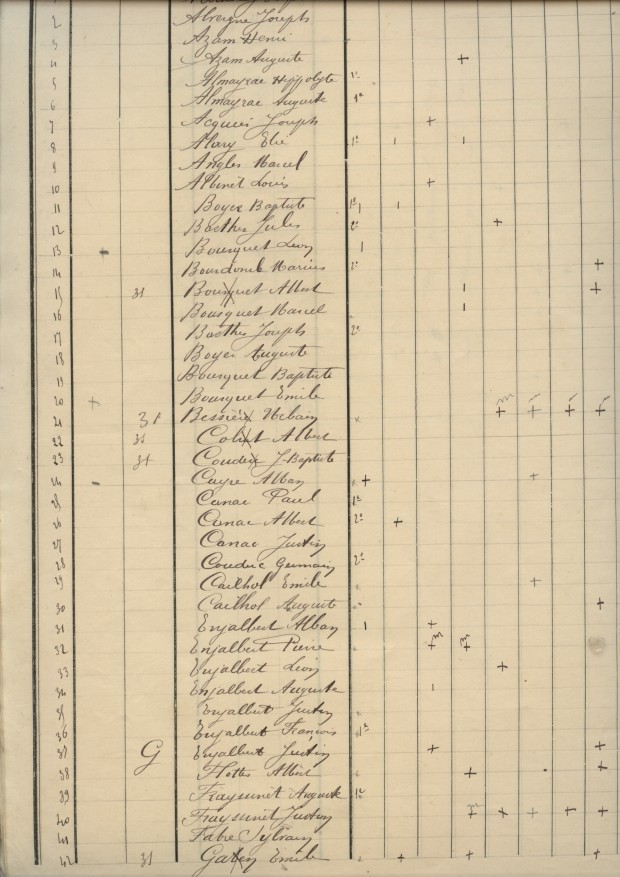 2 Alvergne Joseph
3 Azam Henri
4 Azam Auguste +
5 Almayrac Hippolyte 1e
6 Almayrac Auguste 1e
7 Joseph +
8 Alary Elie 1e 1 1
9 Angles Marcel
10 Albinet Louis +
11 Boyer Baptiste 1e 1 1
12 Barthes Jules 2e +
13 Bousquet Léon 1
14 Marius 2e +
15 31 Bousquet Albert 1 +
16 Bousquet Marcel 1
17 Barthes Joseph 2e
18 Boyer Auguste
19 Bousquet Baptiste
20 + Bousquet Emile
21 31 Bessière Urbain + + + +
22 31 Albert
23 31 Couderc J-Baptiste
24 Cayre Alban + +
25 Canac Paul 1e
26 Canac Albert 2e +
27 Canac Justin
28 Couderc Germain 2e
29 Cailhol Emile +
30 Cailhol Auguste +
31 Enjalbert Alban 1 +
32 Enjalbert Pierre + +
33 Enjalbert Léon +
34 Enjalbert Auguste 1
35 Enjalbert Justin
36 Enjalbert François 1e
37 G Enjalbert Justin + +
38 Flottes Albert + +
39 Fraysinet Auguste 1e
40 Fraysinet Justin + + + + +
41 Fabre Sylvain
42 31 Emile + + +